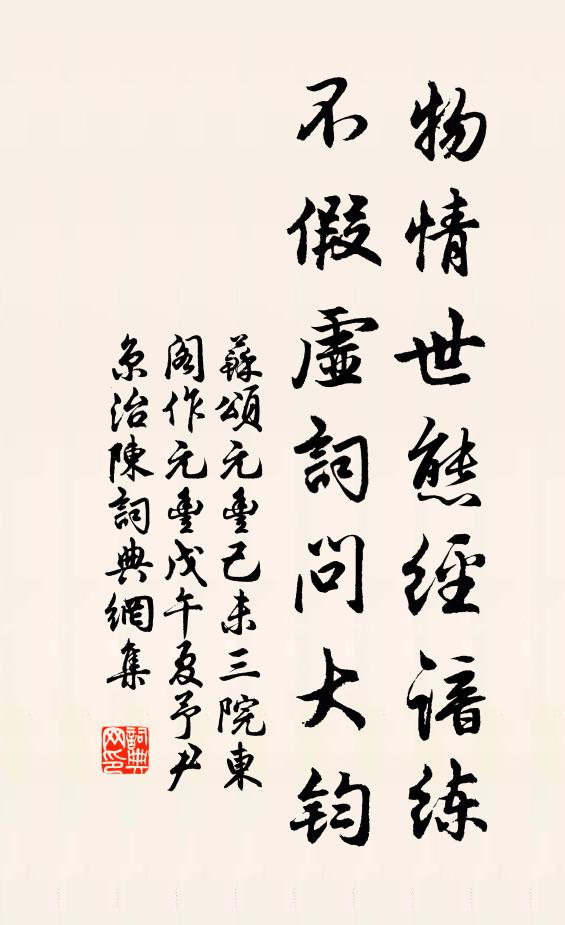 物情世態經諳練
不假虛詞問大鈞
蘇頌元豐己未三院東
閣作元豐戊午夏予尹
京治陳詞典網集
詞典
网印